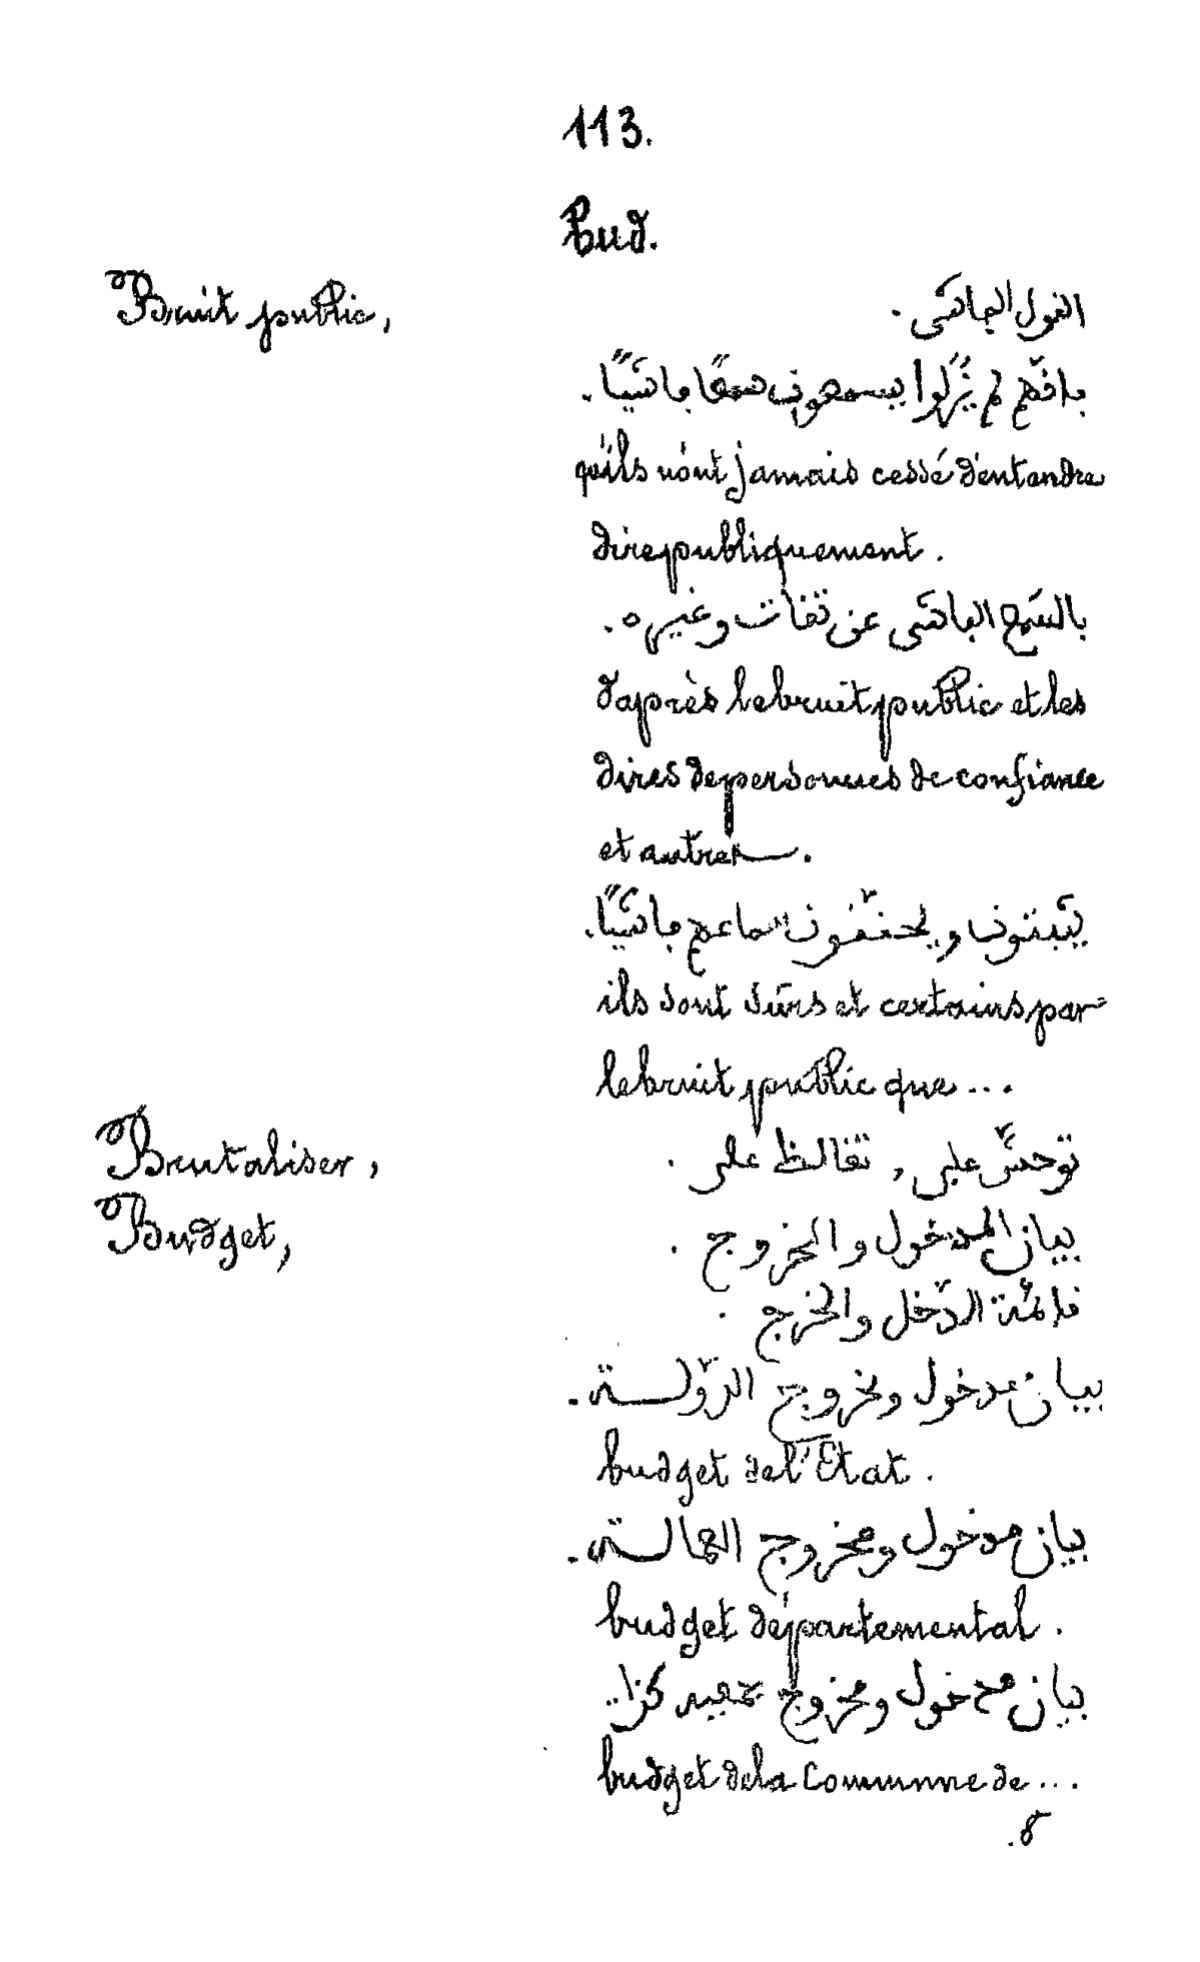 113.
Bud.
Bruit public,
القول الباشى.
بانهم لم يزلوا يسمعون سمعًا باشيًا.
qu'ils n'ont jamais cessé d'entendre
dire publiquement.
بالسمع الباشى عن ثقات وغيره.
d'après le bruit public et les
dires de personnes de confiance
et autres.
يثبتون ويحققون سماعهم باشيًا.
ils sont sûrs et certains par
le bruit public que...
Brutaliser,
توحش على, تغالظ على.
Budget,
بيان المدخول والمخروج.
قائمة الدخل والخرج.
بيان مدخول ومخروج الدولة.
budget de l'Etat.
بيان مدخول ومخروج العمالة.
budget départemental.
بيان مدخول ومخروج كذا..
budget de la Commune de...
8.